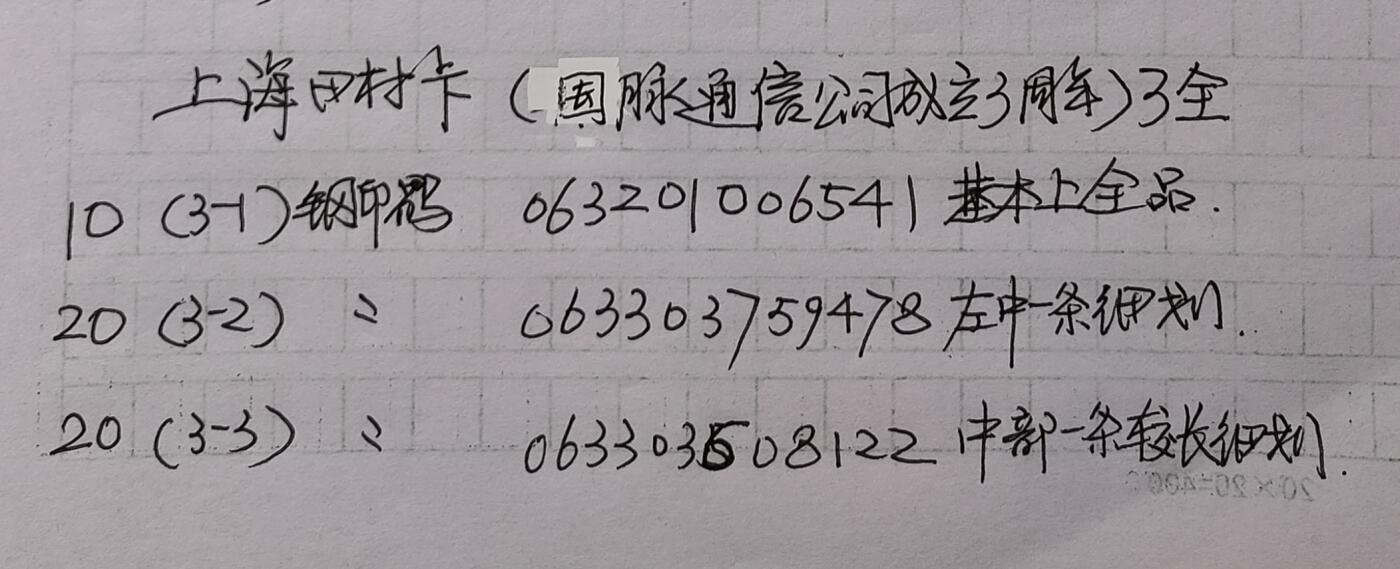 上海田村卡(国脉通信公司成立3周年)3全
10 (3-1)钢印号 063201006541 基本上全品.
20 (3-2) 〃 063303759478 左中一条细划.
20 (3-3) 〃 063303608122 中部一条较长细划.
20×20=400